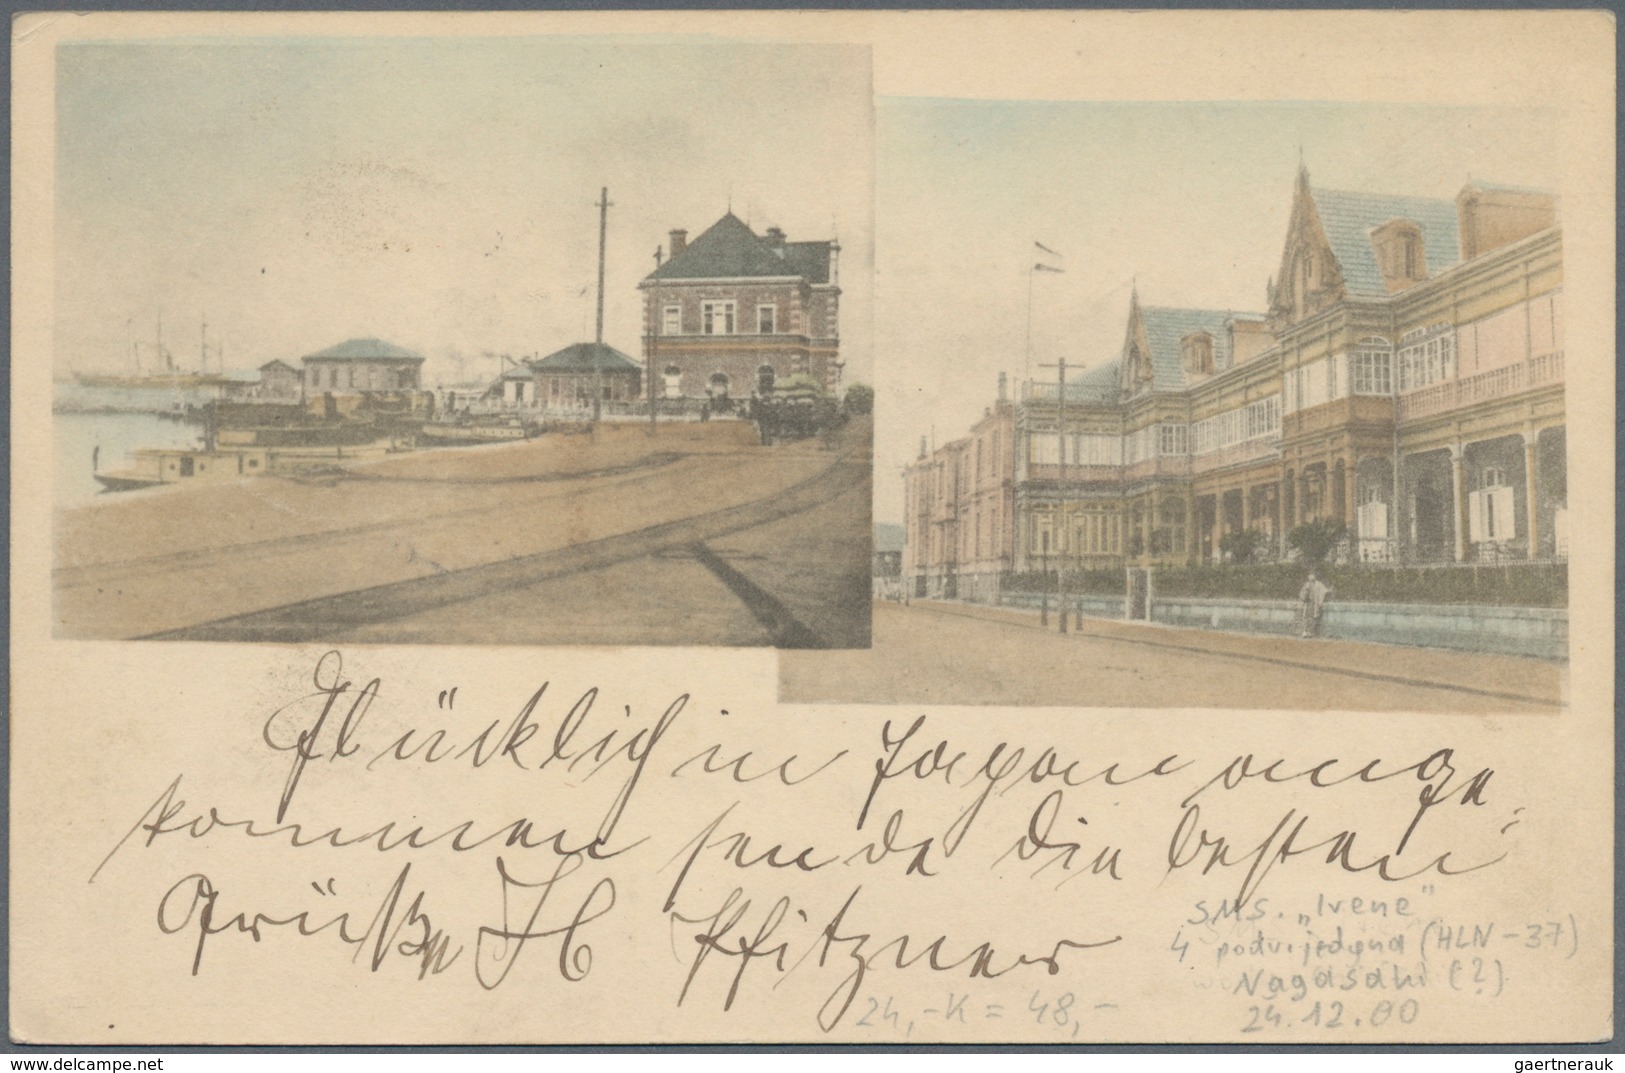 Glücklich in Japan ange-
kommen sende die besten
Grüße Pfitzner
SMS. „Irene"
4 (HLN-37)
Nagasaki (?).
24.12.00
24,-K = 48,-
delcampe.net
gaertnerauk